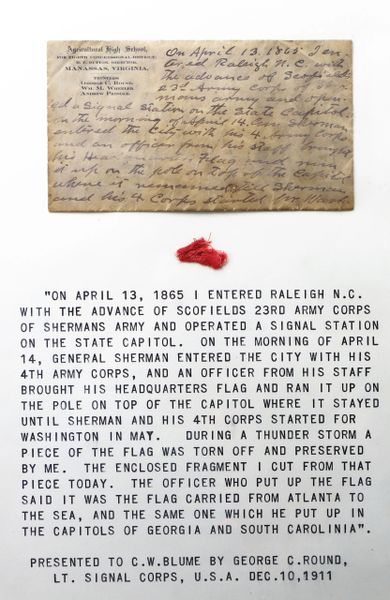 Agricultural High School,
MANASSAS, VIRGINIA.
TRUSTEES
GEORGE C. ROUND,
WM. M. WHEELER,
On April 13. 1865 I en-
tered Raleigh N.C. with
the advance of Scofields
23d Army Corps of
army and opera-
ed a Signal Station on the State Capitol.
On the morning of April 14. Gen Sherman
entered the City with his 4 Army Corps
and an officer from his staff brought
his Head Flag and run
it up on the pole on top of the Capitol
where it remained till Sherman
and his 4 Corps started for Wash
"ON APRIL 13, 1865 I ENTERED RALEIGH N.C.
WITH THE ADVANCE OF SCOFIELDS 23RD ARMY CORPS
OF SHERMANS ARMY AND OPERATED A SIGNAL STATION
ON THE STATE CAPITOL. ON THE MORNING OF APRIL
14, GENERAL SHERMAN ENTERED THE CITY WITH HIS
4TH ARMY CORPS, AND AN OFFICER FROM HIS STAFF
BROUGHT HIS HEADQUARTERS FLAG AND RAN IT UP ON
THE POLE ON TOP OF THE CAPITOL WHERE IT STAYED
UNTIL SHERMAN AND HIS 4TH CORPS STARTED FOR
WASHINGTON IN MAY. DURING A THUNDER STORM A
PIECE OF THE FLAG WAS TORN OFF AND PRESERVED
BY ME. THE ENCLOSED FRAGMENT I CUT FROM THAT
PIECE TODAY. THE OFFICER WHO PUT UP THE FLAG
SAID IT WAS THE FLAG CARRIED FROM ATLANTA TO
THE SEA, AND THE SAME ONE WHICH HE PUT UP IN
THE CAPITOLS OF GEORGIA AND SOUTH CAROLINIA".
PRESENTED TO C.W.BLUME BY GEORGE C.ROUND,
LT. SIGNAL CORPS, U.S.A. DEC.10,1911